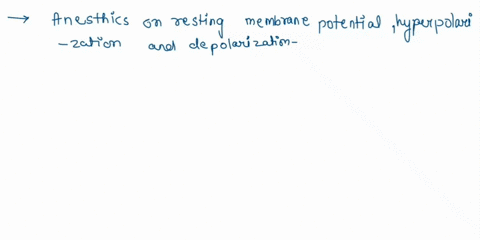 → Anesthics on resting membrane potential, hyperpolari
-zation and depolarization-